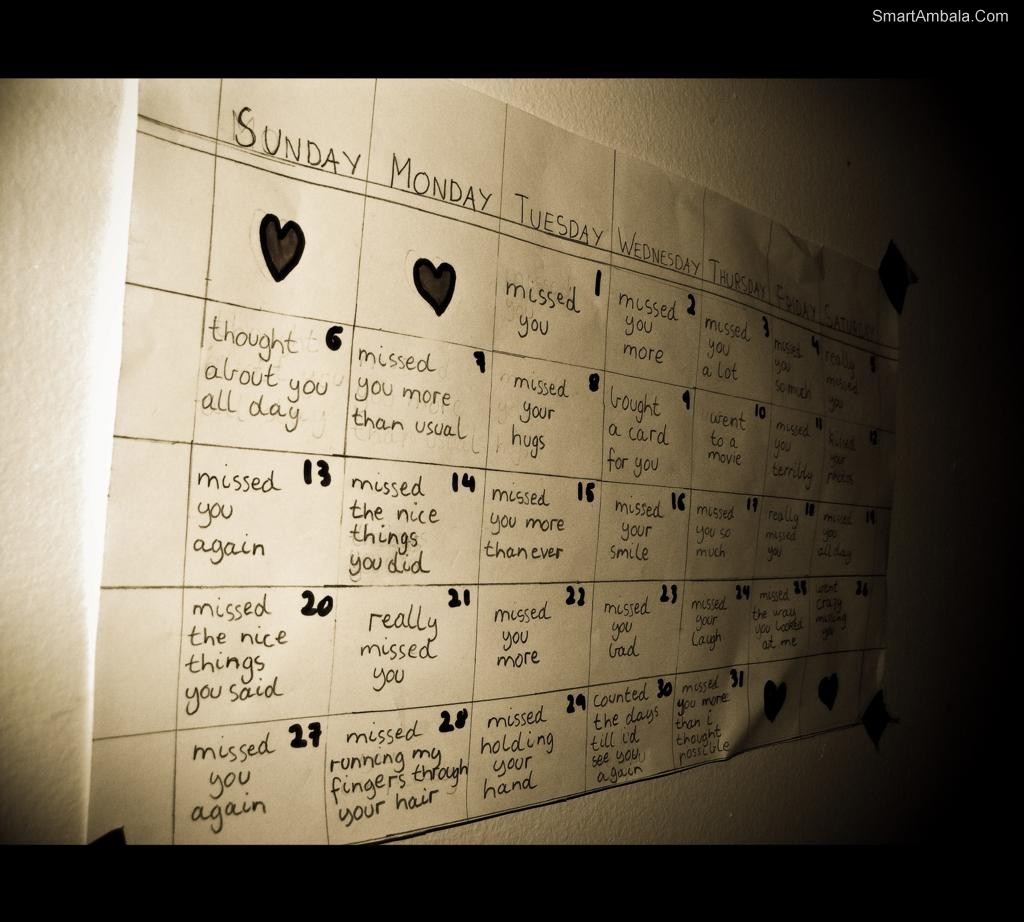 SmartAmbala.Com
SUNDAY MONDAY TUESDAY WEDNESDAY THURSDAY FRIDAY SATURDAY
1
missed
you
2
missed
you
more
3
missed
you
a lot
4
missed
you
so much
5
really
missed
you
6
thought
about you
all day
7
missed
you more
than usual
8
missed
your
hugs
9
bought
a card
for you
10
went
to a
movie
11
missed
you
terribly
12
kissed
your
photos
13
missed
you
again
14
missed
the nice
things
you did
15
missed
you more
than ever
16
missed
your
smile
17
missed
you so
much
18
really
missed
you
19
missed
you
all day
20
missed
the nice
things
you said
21
really
missed
you
22
missed
you
more
23
missed
you
bad
24
missed
your
laugh
25
missed
the way
you looked
at me
26
went
crazy
missing
you
27
missed
you
again
28
missed
running my
fingers through
your hair
29
missed
holding
your
hand
30
counted
the days
till i'd
see you
again
31
missed
you more
than i
thought
possible